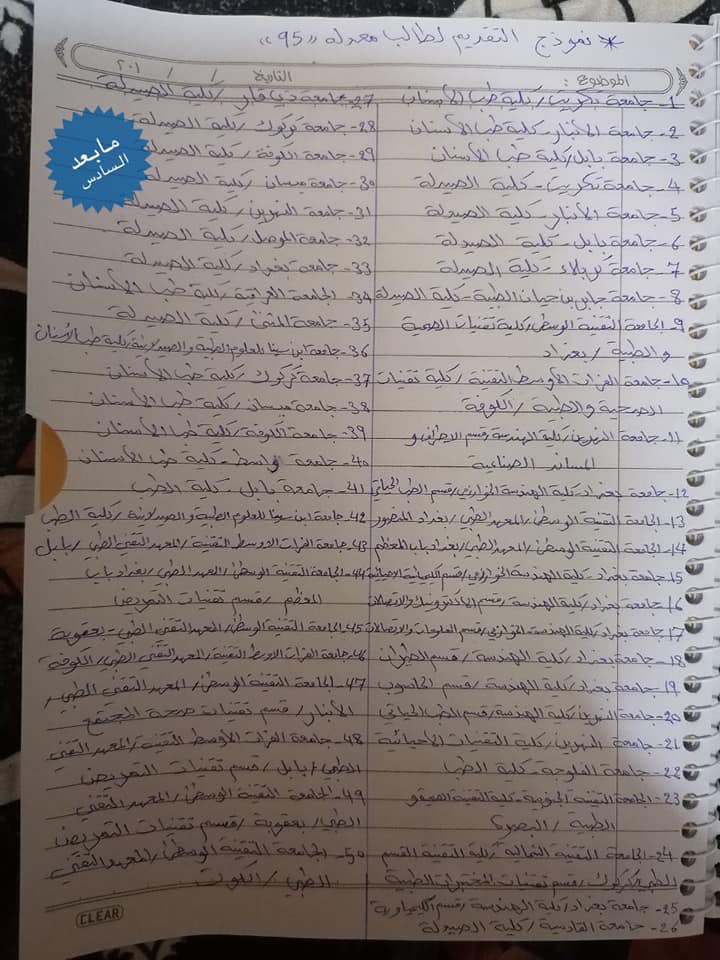 * نموذج التقديم لطالب معدله «95»
الموضوع :
التاريخ / / ٢٠١
مابعد
السادس
1- جامعة تكريت / كلية طب الأسنان
2- جامعة الأنبار - كلية طب الأسنان
3- جامعة بابل / كلية طب الأسنان
4- جامعة تكريت - كلية الصيدلة
5- جامعة الأنبار - كلية الصيدلة
6- جامعة بابل - كلية الصيدلة
7- جامعة كربلاء - كلية الصيدلة
8- جامعة جابر بن حيان الطبية - كلية الصيدلة
9- الجامعة التقنية الوسطى / كلية تقنيات الصحية
والطبية / بغداد
10- جامعة الفرات الأوسط التقنية / كلية تقنيات
الصحية والطبية / الكوفة
11- جامعة النهرين / كلية الهندسة قسم الاطراف و
المساند الصناعية
12- جامعة بغداد / كلية الهندسة الخوارزمي / قسم الطب الحياتي
13- الجامعة التقنية الوسطى / المعهد الطبي / بغداد المنصور
14- الجامعة التقنية الوسطى / المعهد الطبي / بغداد باب المعظم
15- جامعة بغداد / كلية الهندسة الخوارزمي / قسم الكيميائية الاحيائية
16- جامعة بغداد / كلية الهندسة / قسم الالكترونيك والاتصالات
17- جامعة بغداد / كلية الهندسة الخوارزمي / قسم المعلومات والاتصالات
18- جامعة بغداد / كلية الهندسة / قسم الطيران
19- جامعة بغداد / كلية الهندسة / قسم الحاسوب
20- جامعة النهرين / كلية الهندسة / قسم الطب الحياتي
21- جامعة النهرين / كلية التقنيات الاحيائية
22- جامعة الفلوجة - كلية الطب
23- الجامعة التقنية الجنوبية - كلية التقنية الصحية و
الطبية / البصرة
24- الجامعة التقنية الشمالية / كلية التقنية القسم
الطبي كركوك / قسم تقنيات المختبرات الطبية
25- جامعة بغداد / كلية الهندسة / قسم الكيمياوية
26- جامعة القادسية / كلية الصيدلة
27- جامعة ذي قار / كلية الصيدلة
28- جامعة كركوك / كلية الصيدلة
29- جامعة الكوفة / كلية الصيدلة
30- جامعة ميسان / كلية الصيدلة
31- جامعة النهرين / كلية الصيدلة
32- جامعة الموصل / كلية الصيدلة
33- جامعة بغداد / كلية الصيدلة
34- الجامعة العراقية / كلية طب الأسنان
35- جامعة المثنى / كلية الصيدلة
36- جامعة ابن سينا للعلوم الطبية والصيدلانية / كلية طب الأسنان
37- جامعة كركوك / كلية طب الأسنان
38- جامعة ميسان / كلية طب الأسنان
39- جامعة الكوفة / كلية طب الأسنان
40- جامعة واسط - كلية طب الأسنان
41- جامعة بابل - كلية الطب
42- جامعة ابن سينا للعلوم الطبية والصيدلانية / كلية الطب
43- جامعة الفرات الاوسط التقنية / المعهد التقني الطبي / بابل
44- الجامعة التقنية الوسطى / المعهد الطبي / بغداد باب
المعظم / قسم تقنيات التمريض
45- الجامعة التقنية الوسطى / المعهد التقني الطبي - بعقوبة
46- جامعة الفرات الاوسط التقنية / المعهد التقني الطبي / الكوفة
47- الجامعة التقنية الوسطى / المعهد التقني الطبي /
الأنبار / قسم تقنيات صحة المجتمع
48- جامعة الفرات الأوسط التقنية / المعهد التقني
الطبي / بابل / قسم تقنيات التمريض
49- الجامعة التقنية الوسطى / المعهد التقني
الطبي / بعقوبة / قسم تقنيات التمريض
50- الجامعة التقنية الوسطى / المعهد التقني
الطبي / الكوت
CLEAR